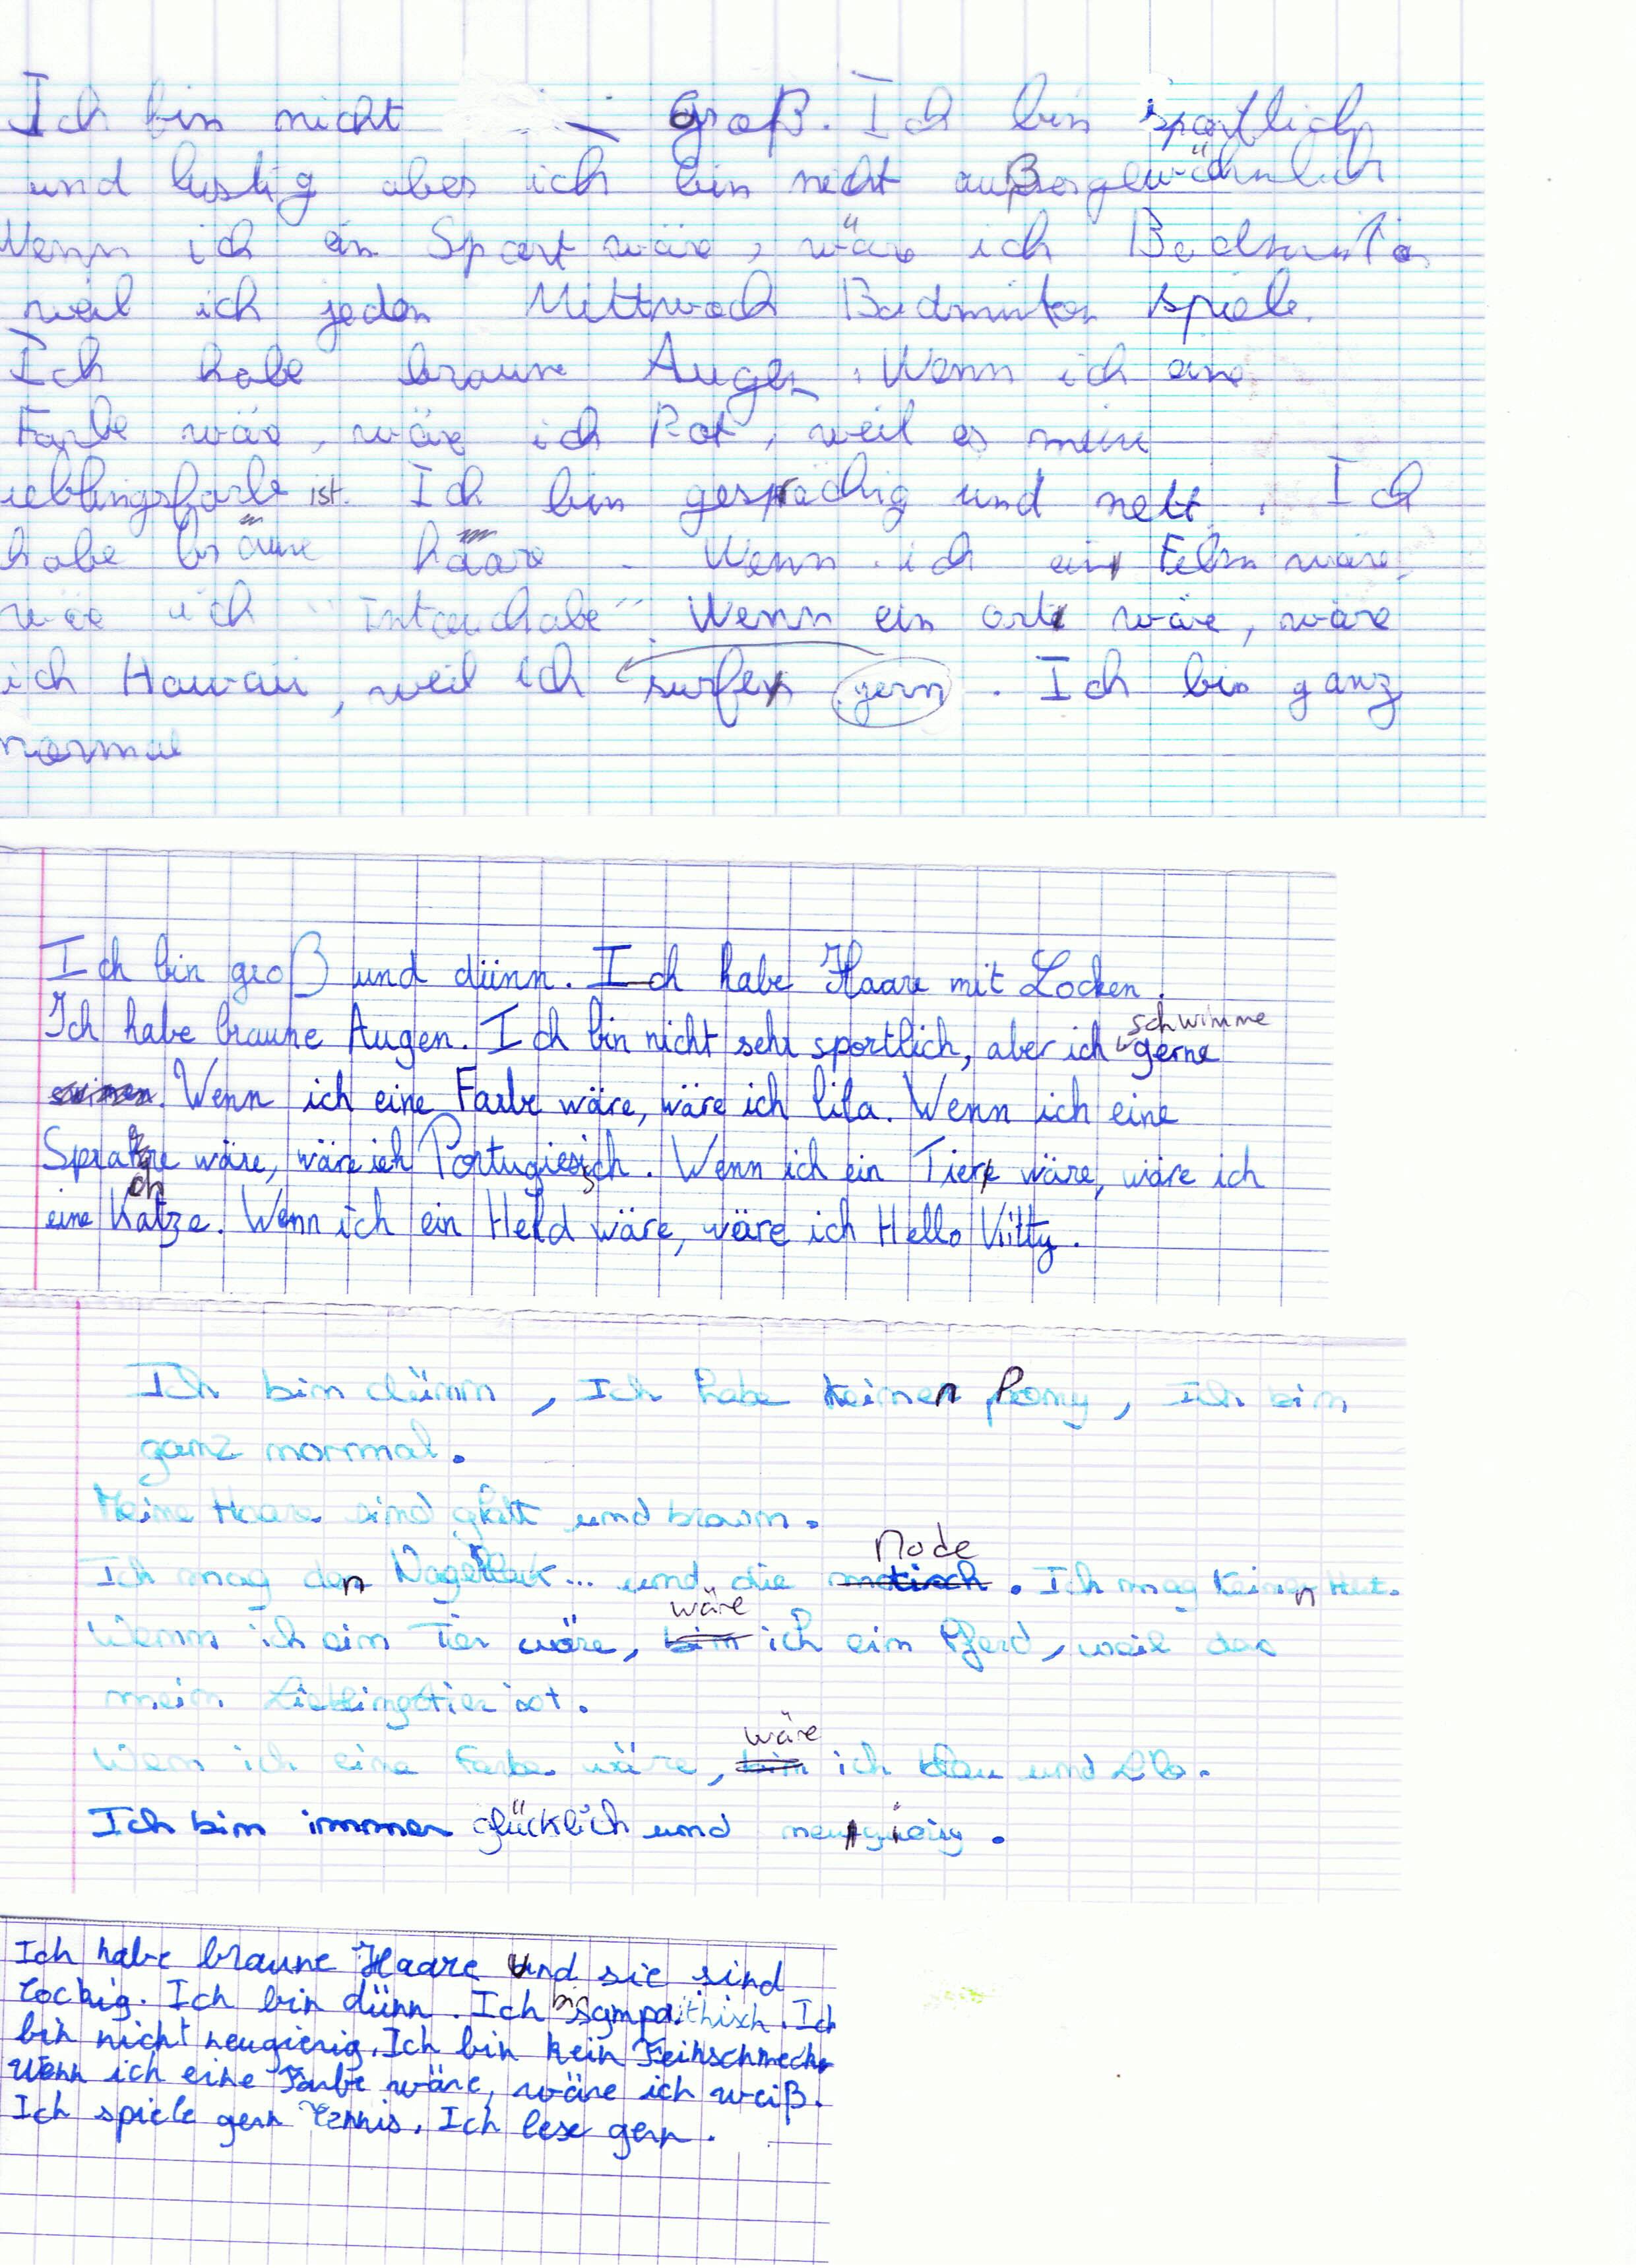 Ich bin nicht groß. Ich bin sportlich
und lustig aber ich bin nicht außergewöhnlich
Wenn ich ein Sport wäre, wäre ich Badminton
weil ich jeden Mittwoch Badminton spiele.
Ich habe braune Augen. Wenn ich eine
Farbe wäre, wäre ich Rot, weil es meine
ieblingsfarbe ist. Ich bin gesprächig und nett. Ich
habe braune haare. Wenn ich ein Film wäre
wäre ich " ". Wenn ein ort wäre, wäre
ich Hawaii, weil ich surfe gern. Ich bin ganz
normal
Ich bin groß und dünn. Ich habe Haare mit Locken.
Ich habe braune Augen. Ich bin nicht sehr sportlich, aber ich schwimme gerne
. Wenn ich eine Farbe wäre, wäre ich lila. Wenn ich eine
Sprache wäre, wäre ich Portugiesisch. Wenn ich ein Tier wäre, wäre ich
eine Katze. Wenn ich ein Held wäre, wäre ich Hello Kitty.
Ich bin dünn, Ich habe keinen Pony, Ich bin
ganz normal.
Meine Haare sind glatt und braun.
Ich mag den Nagellack... und die Mode. Ich mag keinen Hut.
Wenn ich ein Tier wäre, wäre ich ein Pferd, weil das
mein Lieblingstier ist.
Wenn ich eine Farbe wäre, wäre ich blau und Lila.
Ich bin immer glücklich und neugierig.
Ich habe braune Haare und sie sind
lockig. Ich bin dünn. Ich bin sympathisch. Ich
bin nicht neugierig. Ich bin kein Feinschmecker
Wenn ich eine Farbe wäre, wäre ich weiß.
Ich spiele gern Tennis. Ich lese gern.